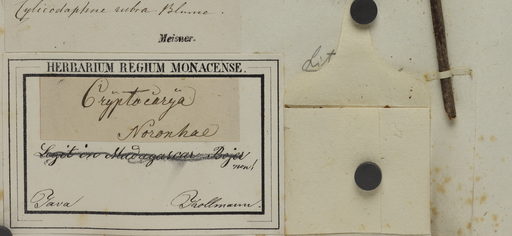 Cylicodaphne rubra Blume.
Meisner.
HERBARIUM REGIUM MONACENSE.
Cryptocarya
Noronhae
Legit in Madagascar Bojer
non!
Java Zollmann.